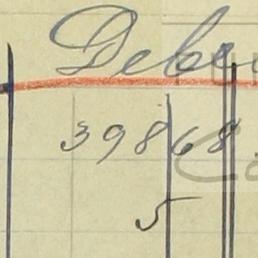 Debe
398 68
5